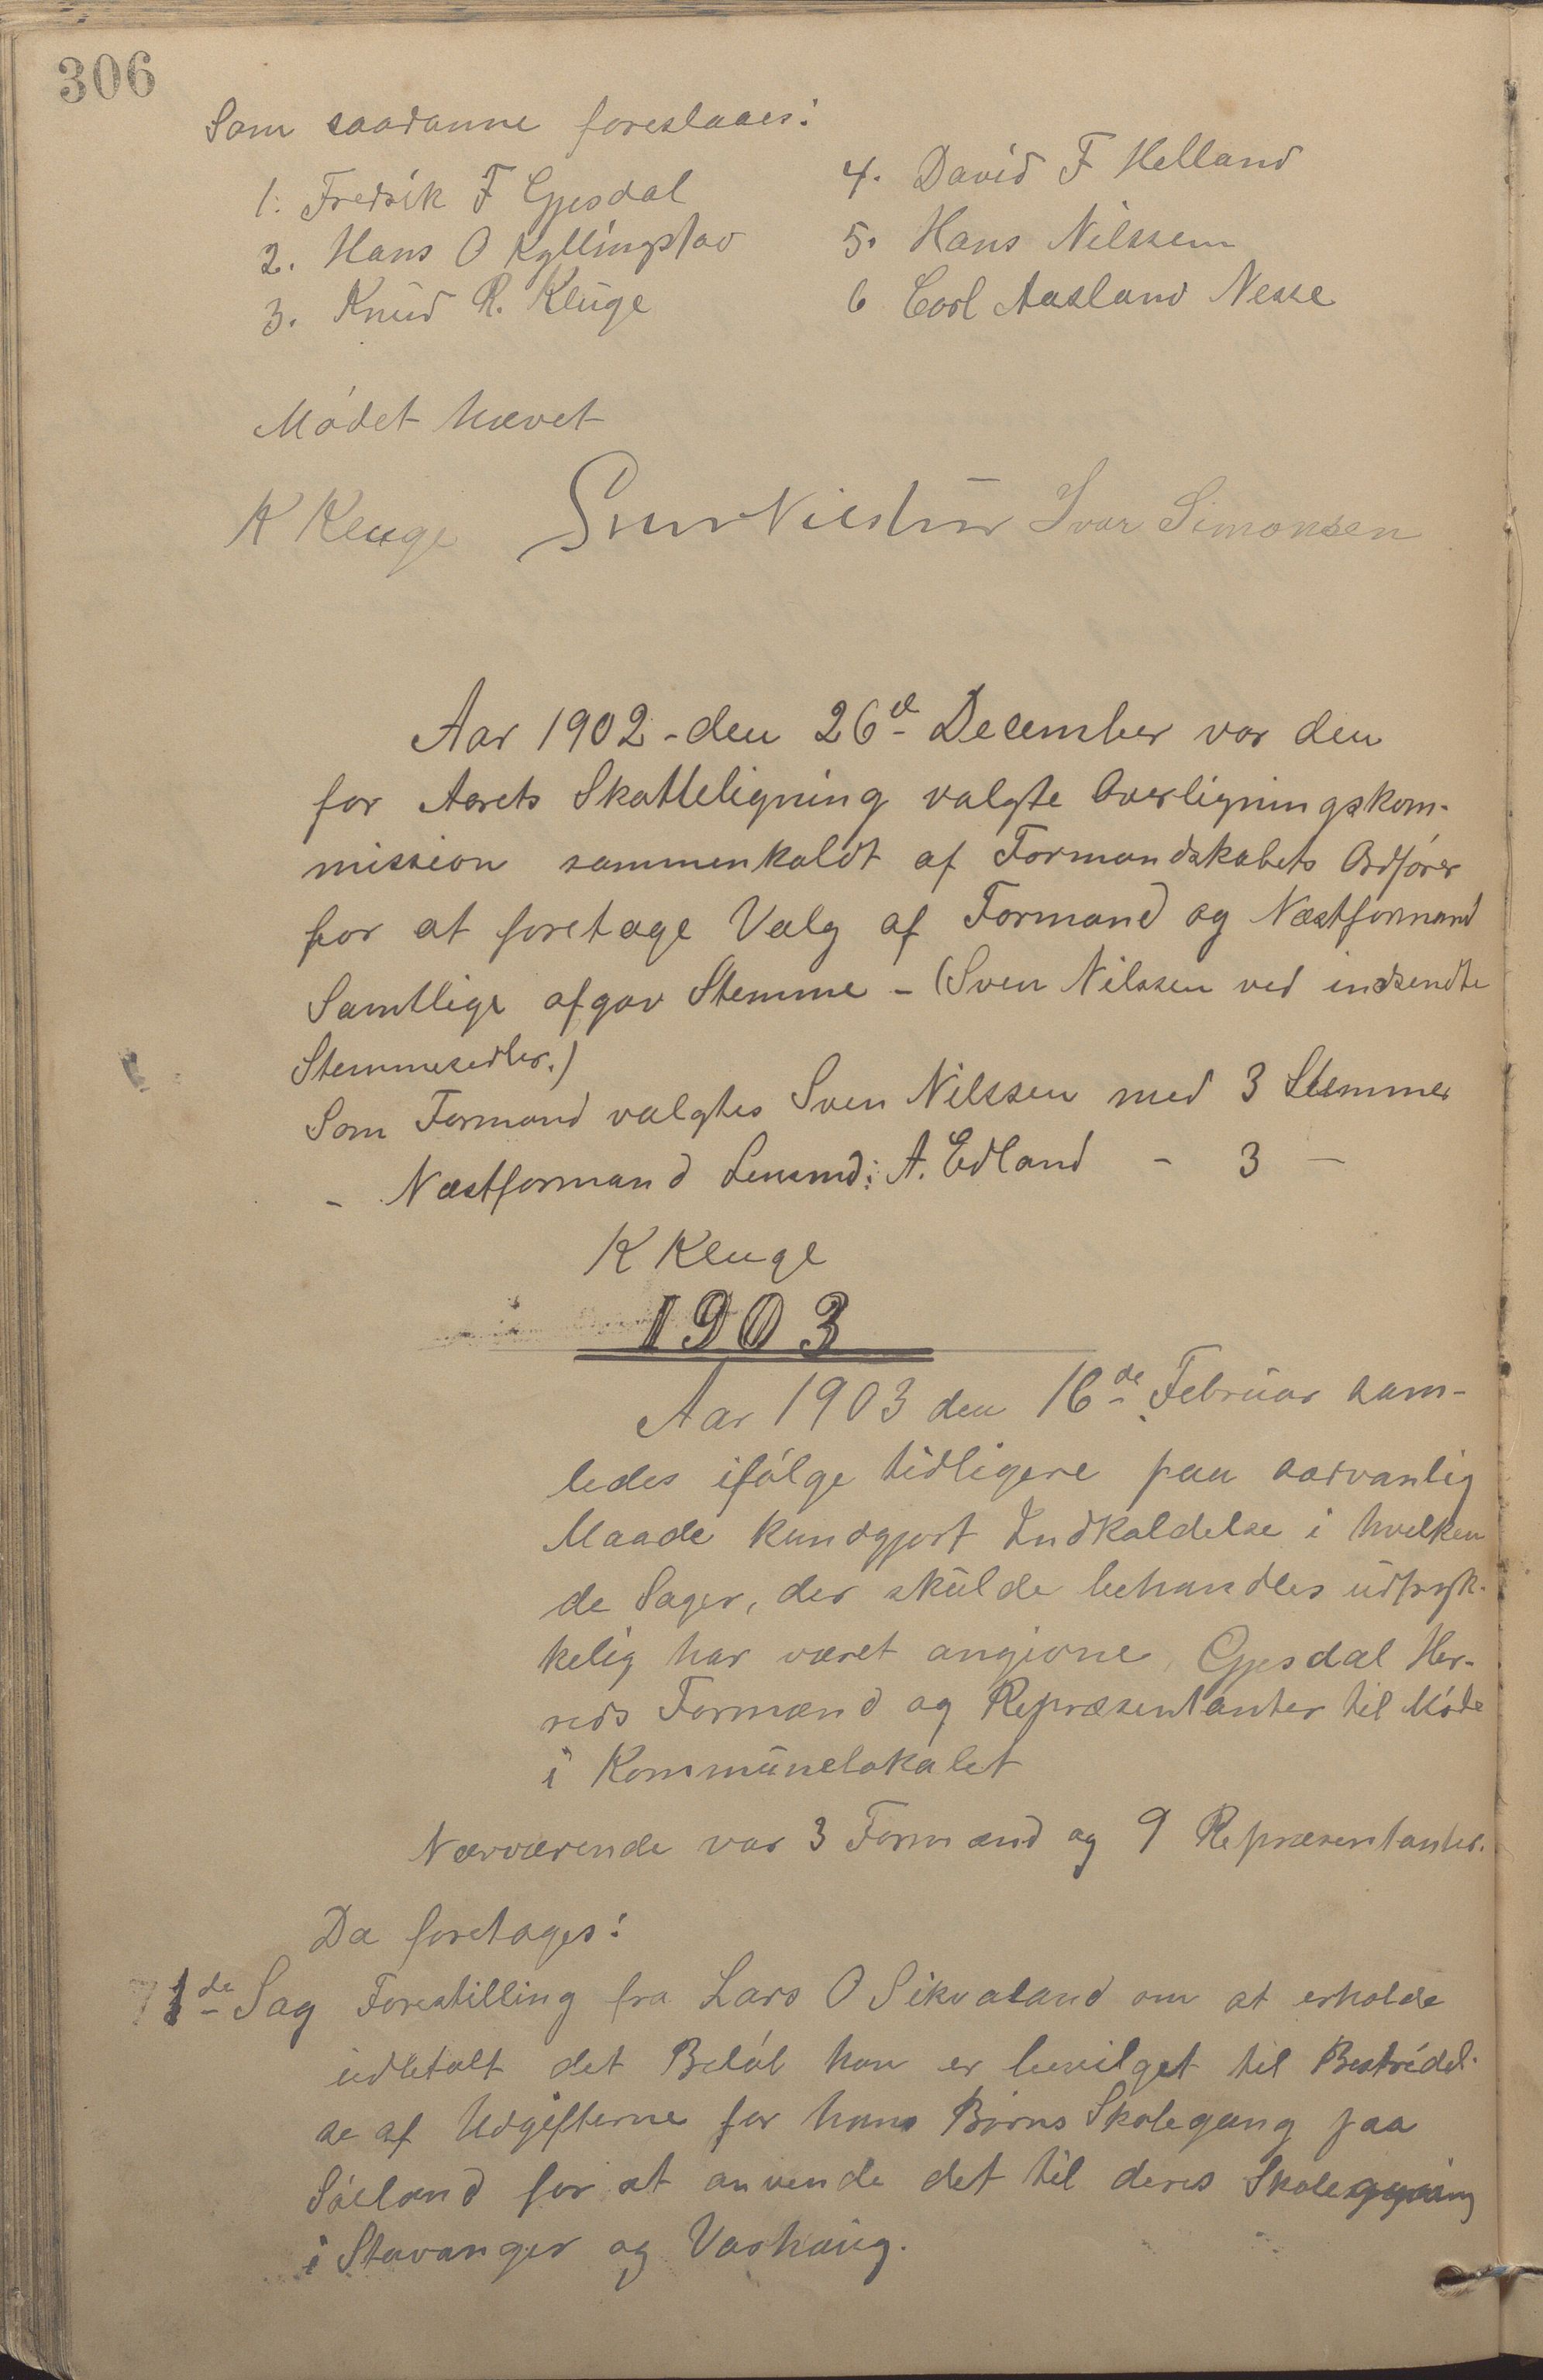 306
Som saadanne foreslaaes:
1. Fredrik F Gjesdal
2. Hans O Kyllingstad
3. Knud R. Kluge
4. David F Helland
5. Hans Nilssen
6 Carl Aasland Nesse
Mödet hævet
K Kluge Sven Nilssen Ivar Simonsen
Aar 1902 - den 26de December var den
for Aarets Skatteligning valgte Overligningskom-
mission sammenkaldt af Formandskabets Ordfører
for at foretage Valg af Formand og Næstformand
Samtlige afgav Stemme - (Sven Nilssen ved indsendte
Stemmesedler.)
Som Formand valgtes Sven Nilssen med 3 Stemmer
- Næstformand Lensmd: A. Edland - 3 -
K Kluge
1903
Aar 1903 den 16de Februar sam-
ledes ifølge tidligere paa sædvanlig
Maade kundgjort Indkaldelse i hvilken
de Sager, der skulde behandles udtryk-
kelig har været angivne, Gjesdal Her-
reds Formænd og Repræsentanter til Møde
i Kommunelokalet
Nærværende var 3 Formænd og 9 Repræsentanter.
Da foretages:
1de Sag Forestilling fra Lars O Sikvaland om at erholde
udbetalt det Beløb han er bevilget til Bestridel-
se af Udgifterne for hans Børns Skolegang paa
Sæland for at anvende det til deres Skolegang
i Stavanger og Vashaug.